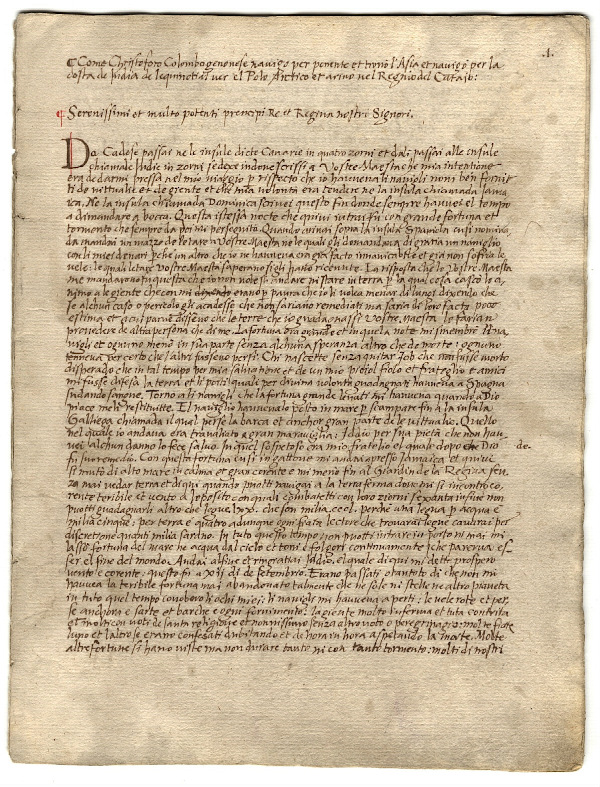 .1.
¶ Come Christoforo Colombo genovese navigo per ponente et trovo l'Asia et navigo per la
costa de India de lequinotial ver el Polo Artico et arivo nel Regnio del Cataio:
¶ Serenissimi et multo potenti prencipi Re et Regina nostri Signori.
Da Cadese passai ne le insule dicte Canarie in quatro zorni et dali passai alle insule
chiamate Indie in zorni sedece in dove scrissi a Vostre Maesta che mia intentione
era de darmi pressa nel mio viaggio p rispecto che io haueua li navilij novi ben forniti
di vittualie et de gente et che mia volonta era tendere ne la insula chiamada Jamaica.
Ne la insula chiamada Domenica scrivei questo fin donde sempre havuei el tempo
a dimandare a bocca. Questa istessa nocte che quivi intrai fu con grande fortuna et
tormento che sempre da poi mi persequito. Quando arivai sopra la insula Spaniola
da mandai un mazzo de letere a Vostre Maesta ne le quali gli demandava di gratia un naviglio
con li miei denari perche un altro che io ne haueua era gia facto innavicabile et gia non sofria le
vele: le quali letere Vostre Maesta saperano se gli hano ricevute. La risposta che le Vostre Maesta
me mandarono fu questa che io non volessi andare ne stare in terra p la qual cosa casco lo
animo a le giente che con mi erano p paura che io li volea menar da lungi dicendo che
se alchun caso o pericolo gli acadesse che non sariano remediati ma saria di loro facto poca
estima et ogni par
provedere de altra persona che di me. La fortuna era grande et in quela nocte mi smembro li navigli
et ogniuno meno in sua parte senza alchuna speranza altro che de morte: ogniuno
teneva per certo che l'altri fusseno persi. Chi nascette senza quitar Job che non fusse morto
disperado che in tal tempo per mia salvatione et de un mio piciol fiolo et fratello et amici
mi fusse difesa la terra et li porti quali per divina volonta guadagnati haueua a Spagna
sudando sangue. Torno a li navigli che la fortuna grande levati mi haueua quando a Dio
piace me li restituitte. El naviglio
Galliega chiamada il qual perse la barca et anchor gran parte de le vittualie. Quello
nel quale io andava era travaliato a gran maraviglia: Idio per sua pieta che non hauue
alchun danno lo fece salvo. In quel sospetoso era mio fratello et quali dopo Dio de-
fu suo remedio. Con questa fortuna cusi in gattone mi andai apresso Jamaica et quivi
si muto di alto mare in calma et gran corente et mi meno fin al Giardin de la Regina senza
mai vedar terra et di qui quando puotti navigai a la terra ferma dove mi si incontro corente
teribile et vento al oposito con quali combatetti con loro ziorni sexanta in fine non
puotti guadagnarli altro che legue lxx. che son milia perche una legua p acqua e
milia cinque: per terra e quatro
discretione quanti milia sarano. In tuto questo tempo non puotti intrare in porto ni mai mi
lasso fortuna del mare ne acqua dal cielo et toni e folgori continuamente che pareva esser
el fine del mondo. Andai al fine et ringratiai Iddio, el quale di qui mi dette prospero
vento e corente. questo fu a xij di de setembrio. Erano passati otanta et otto di che non mi
haueua la teribile fortuna mai abandonato talmente che ne sole ni stelle ne altro pianeta
in tuto quel tempo con loro li ochi miei: li navigli mi haueua aperti: le vele rote et perse
anchore e sartie et barche e ogni fornimento: la giente molto inferma et tuta contrita
et molti con voti de santa religione et non nissuno senza altro voto o peregrinagio: molte fiate
luno et l'altro se erano confessati dubitando et de hora in hora aspetando la morte. Molte
altre fortune si hano viste ma non durare tanto ni con tanto tormento: molti di nostri